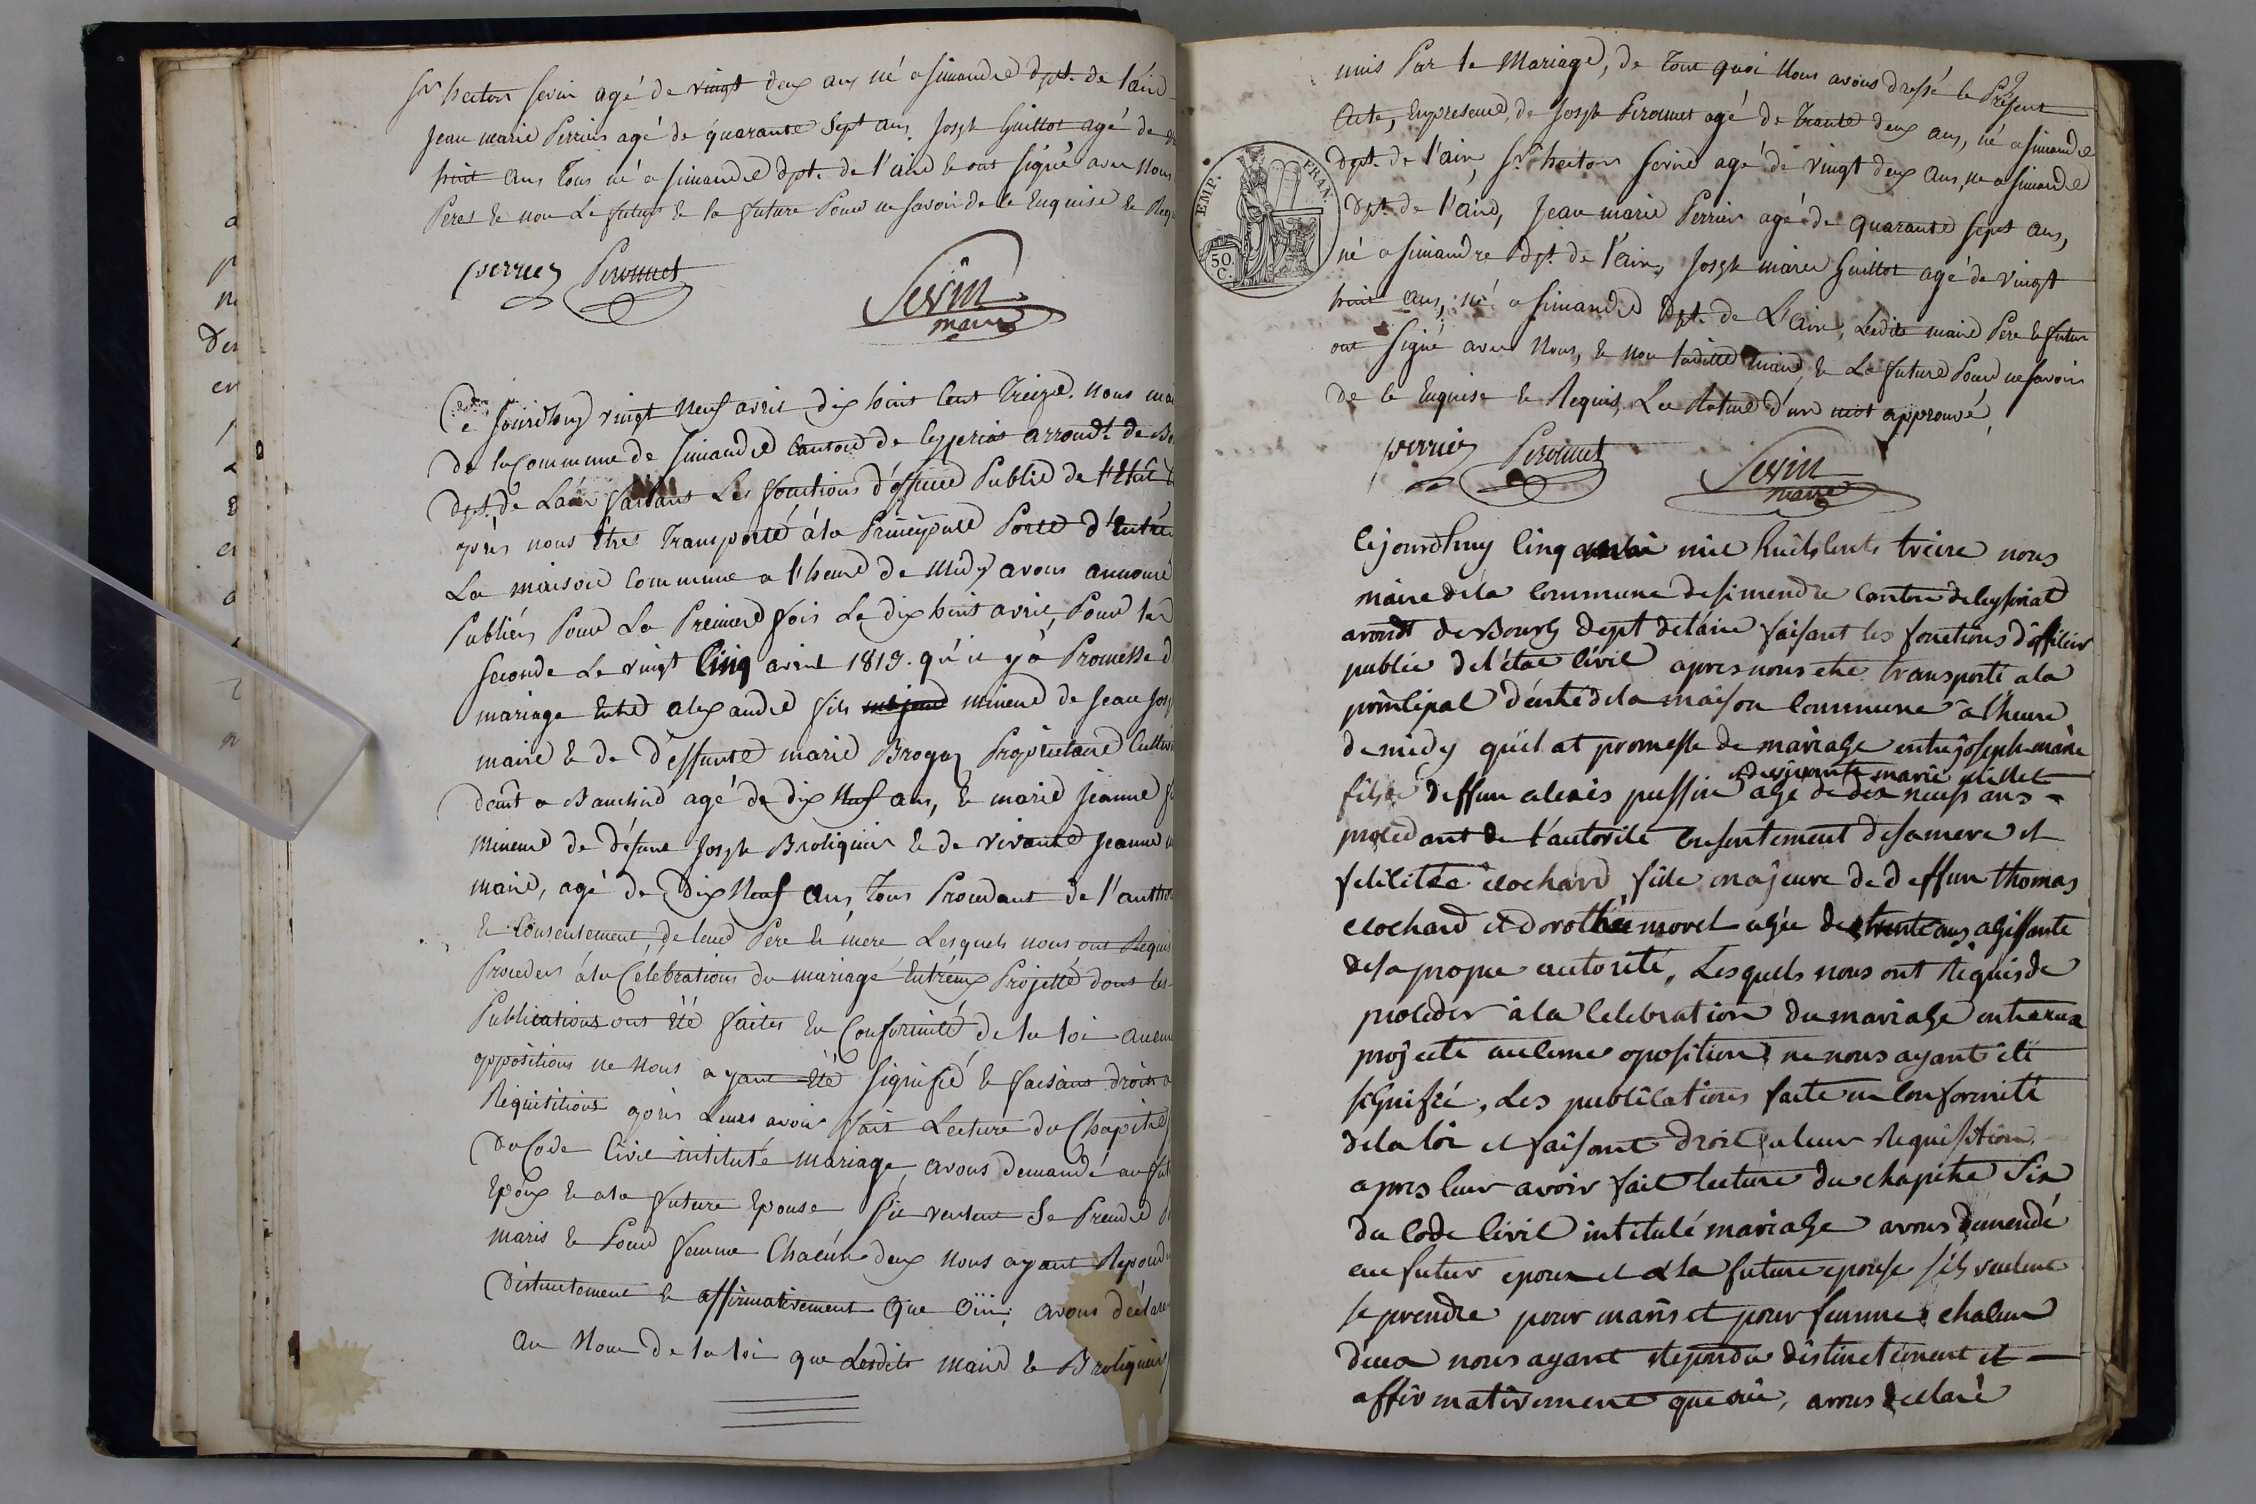 Sr hector sevin agé de vingt deux ans né a simandre dpt. de l'ain
Jean marie Perrier agé de quarante sept ans, Josph Guillot agé de
huit ans Tous né a simandre dpt. de l'ain & ont signé avec Nous
Peres & non Le futur & la future Pour ne savoir de ce Enquise & Requis
perrier Peromet
Sevin
maire
Ce Jourdhuy vingt Neuf avril dix huit Cent Treize. Nous mai
de la Commune de Simandre Canton de Ceyzeriat arrondt. de Bo
dpt. de Lain faisant Les fonctions d'officier Public de l'Etat
après nous être Transporté à la Principale Porte d'Entrée
La maison Commune a l'heure de Midy avons annoncé
Publiés Pour La Premiere fois Le dix huit avril, Pour la
seconde Le vingt Cinq avril 1813. qu'il y à Promesse d
mariage Entre alexandre fils majeur mineur de Jean Josp
maire & de deffunte marie Brogaz Proprietaire Cultiv
demt a Banchin agé de dix Neuf ans, & marie Jeanne f
mineure de défunt Josph Broliquier & de vivante Jeanne
maire, agé de Dix Neuf ans, Tous Procedant de l'autho
& Consentement, de leur Pere & mere Lesquels nous ont Requis
Proceder à la Celebrations du mariage Entréux Projetté dont les
Publications ont été faites En Conformité de la loi aucun
oppositions ne Nous ayant été signifié & faisant droit a
Réquisitions après Leurs avoir fait Lecture du Chapitre
Du Code Civil intitulé mariage, avons demandé au fut
Epoux & a la future Epouse s'ils veulent Se Prendre
maris & Pour femme Chacún deux Nous ayant Repondu
Distinctement & affirmativement Que Oüi; avons déclaré
au Nom de la loi que Lesdits maire & Broliquier
unis Par le Mariage, de Tout quoi Nous avons dressé le Présent
Acte, En presence, de Josph Peromet agé de Trante deux ans, né a simandre
dpt. de l'ain, Sr. hector sevin agé de vingt deux ans, né a simandre
dpt. de l'ain, Jean marie Perrier agé de quarante sept ans,
né a simandre dpt. de l'ain, Josph marie Guillot agé de vingt
huit ans, né a simandre dpt. de L'ain, Ledit maire Pere & futur
ont signé avec Nous, & non ladite maire, & La future Pour ne savoir
de ce Enquise & Requis. La Rature d'un mot approuvé,
EMP. FRAN.
50 C.
perrier Peromet
Sevin
maire
Cejourdhuy Cinq mai mil huits Cents treize nous
maire déla Commune de simendre Canton de Ceyseriat
arondt de Bourg dept delain faisant les fonctions d'officier
public del'état Civil apres nous etre transporté a la
principal d'entré dela maison Commune à l'heure
de midy qu'il at promesse de mariage entre joseph marie
et de vivante marie pillet
fils de deffun alexis puffin agé de dix neuf ans
procedant de l'autorité Consentement de sa mere et
felicitée clochard fille majeure de deffun thomas
clochard et dorothée morel agée de trente ans agissante
de sa propre autorité, Lesquels nous ont Requis de
proceder à la Celebration du mariage entreeux
projecté aucune oposition ne nous ayant été
signifié, Les publications faite en Conformité
dela loi et faisant droit a leur Requisition
apres leur avoir fait lecture du chapitre Six
du Code Civil intitulé mariage avons demendé
au futur epoux et a la future epouse s'ils veulent
se prendre pour maris et pour femme chacun
deux nous ayant Repondu distinctement et
affirmativement que oui, avons declaré